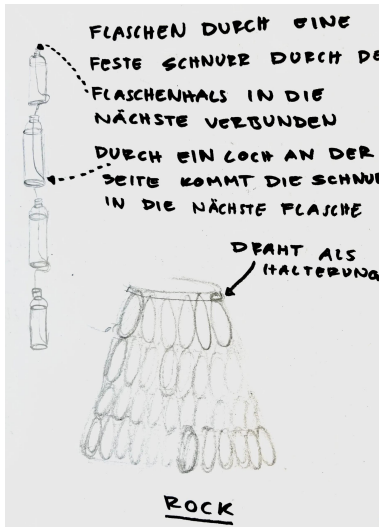 FLASCHEN DURCH EINE
FESTE SCHNUR DURCH DE
FLASCHENHALS IN DIE
NÄCHSTE VERBUNDEN
DURCH EIN LOCH AN DER
SEITE KOMMT DIE SCHNUR
IN DIE NÄCHSTE FLASCHE
DRAHT ALS
HALTERUNG
ROCK